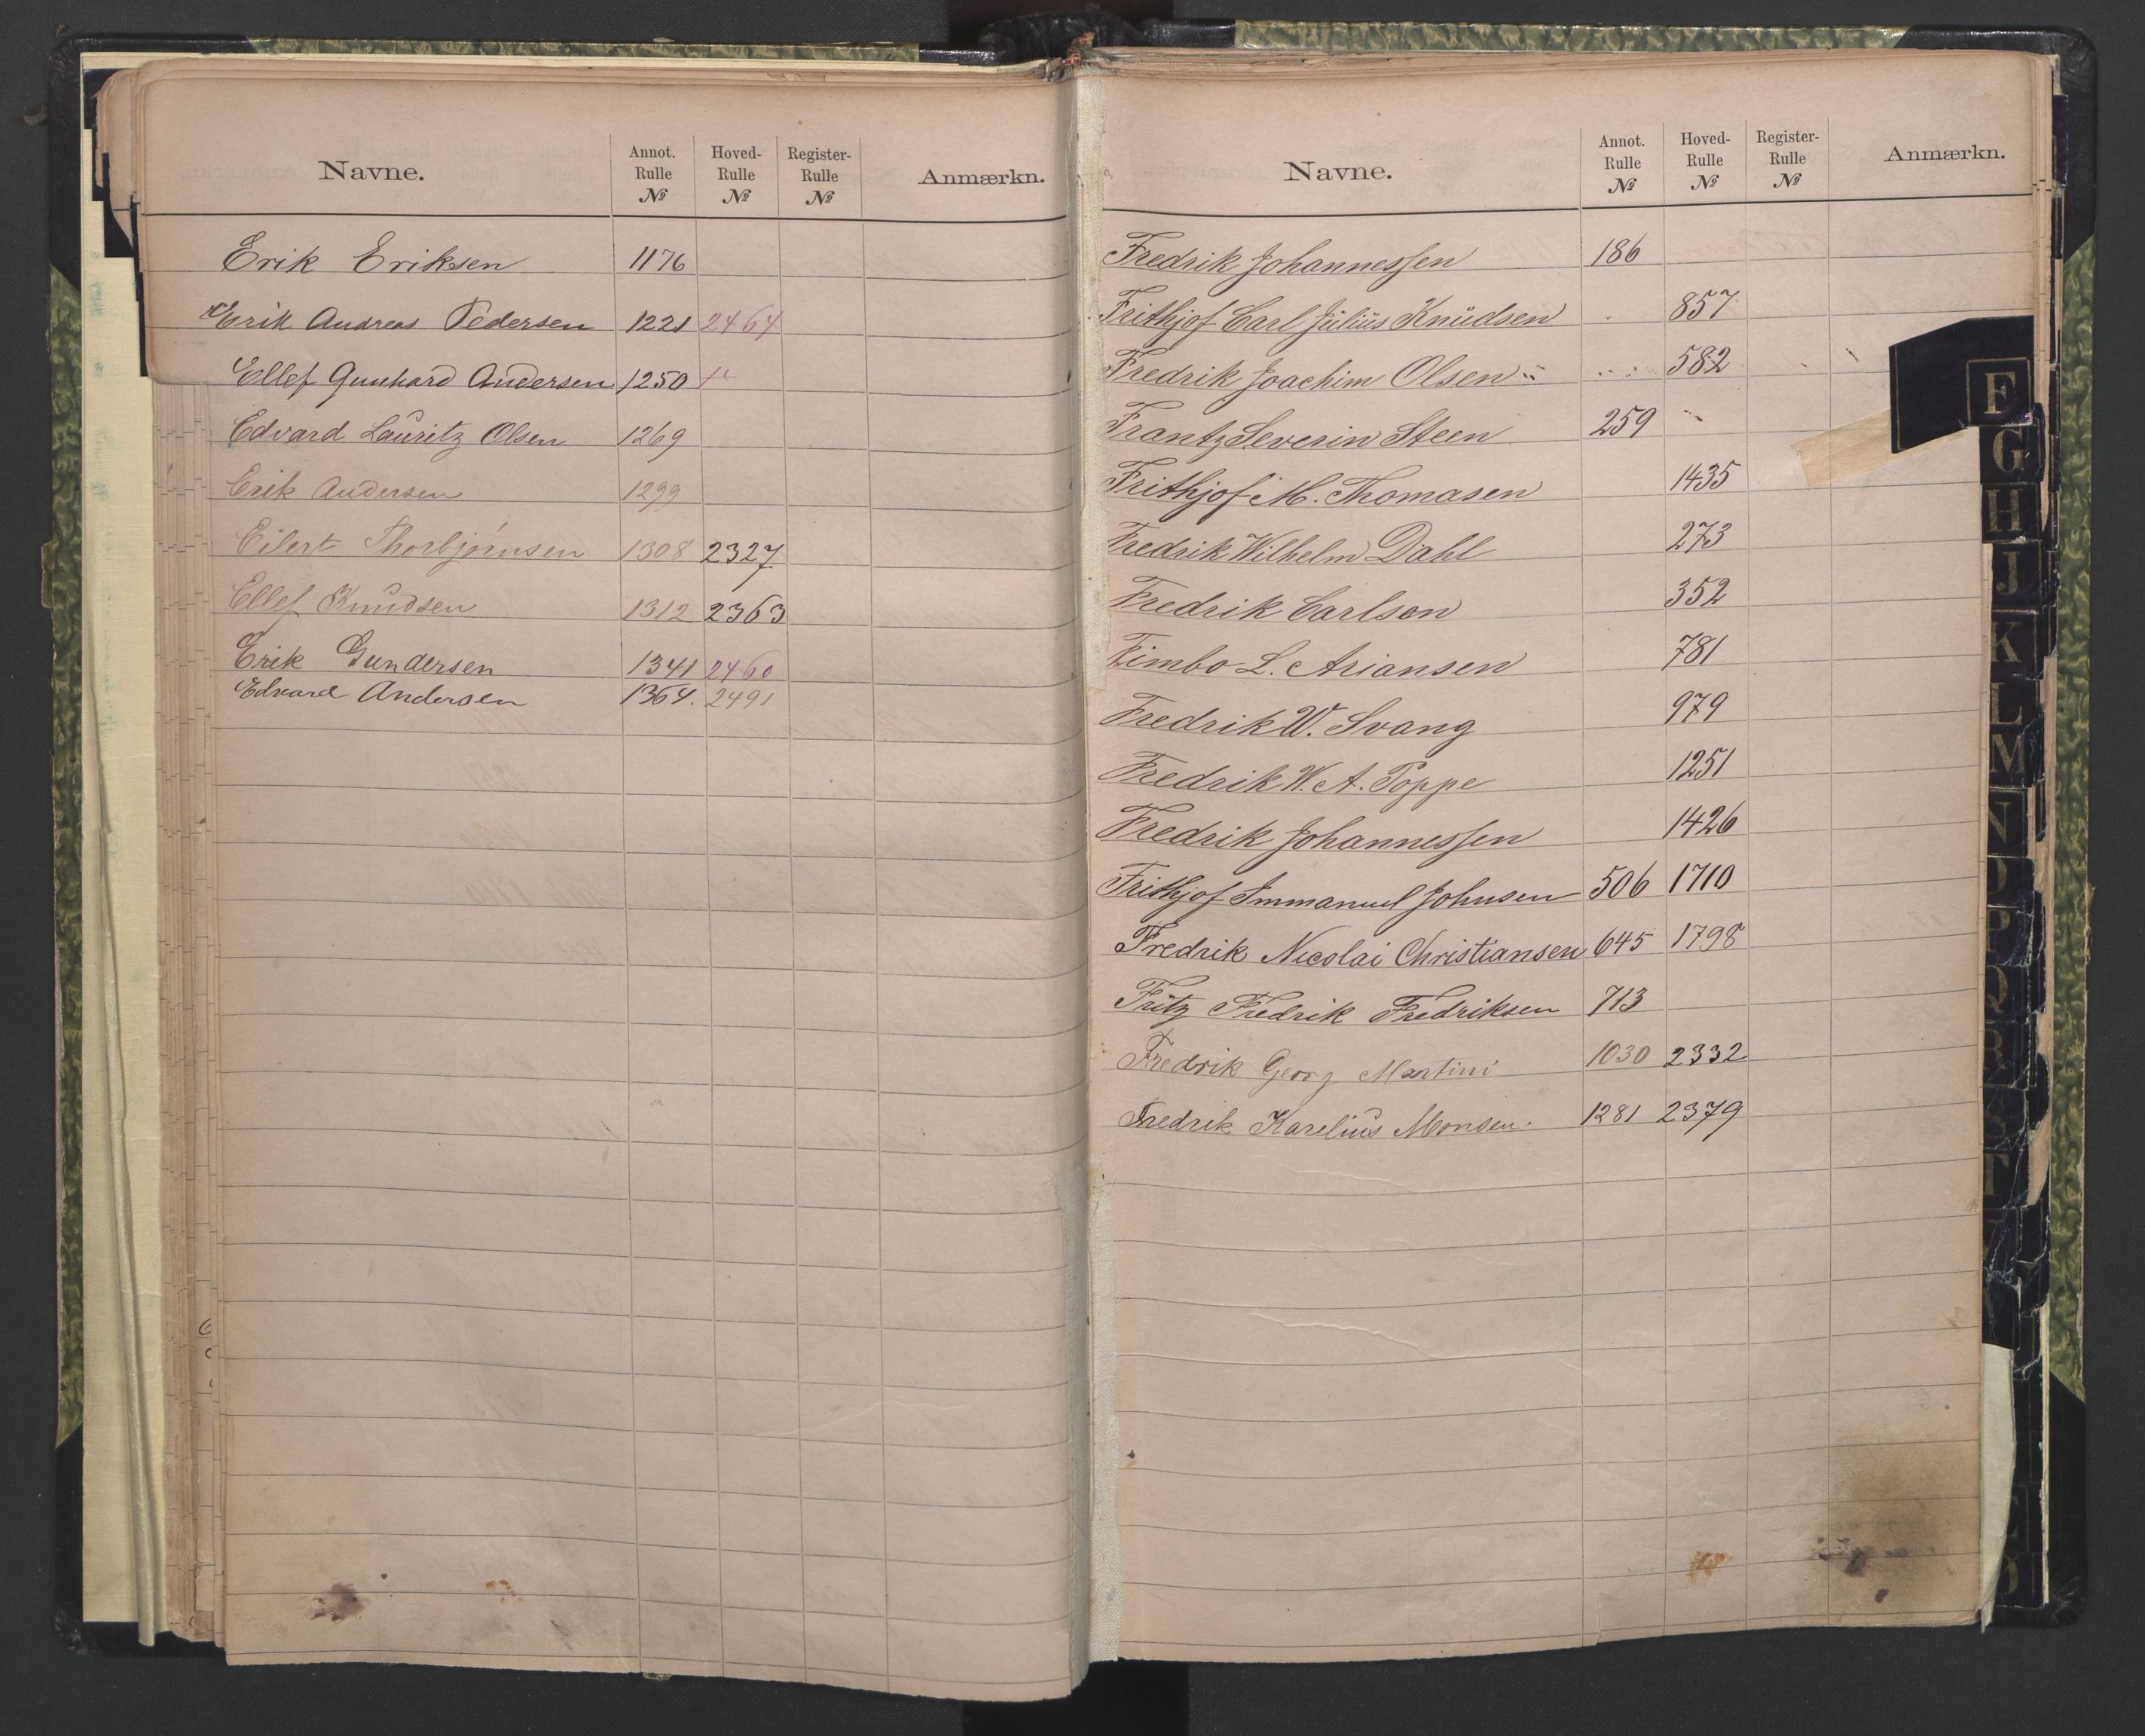 Navne. Annot. Rulle № Hoved-Rulle № Register-Rulle № Anmærkn.
Erik Eriksen 1176
Erik Andreas Pedersen 1221 2464
Ellef Gunhard Andersen 1250
Edvard Lauritz Olsen 1269
Erik Andersen 1299
Eilert Thorbjørnsen 1308 2327
Ellef Knudsen 1312 2363
Erik Gundersen 1341 2460
Edvard Andersen 1364. 2491
Navne. Annot. Rulle № Hoved-Rulle № Register-Rulle № Anmærkn.
Fredrik Johannessen 186
Frithjof Carl Julius Knudsen 857
Fredrik Joachim Olsen 582
Frantz Severin Steen 259
Frithjof M. Thomasen 1435
Fredrik Wilhelm Dahl 273
Fredrik Carlson 352
Fimbo L. Ariansen 781
Fredrik W. Svang 979
Fredrik W. A. Poppe 1251
Fredrik Johannessen 1426
Frithjof Immanuel Johnsen 506 1710
Fredrik Nicolai Christiansen 645 1798
Fritz Fredrik Fredriksen 713
Fredrik Georg Martini 1030 2332
Fredrik Karelius Monsen. 1281 2379
F
G
H
J
K
L
M
N
O
P
Q
R
S
T